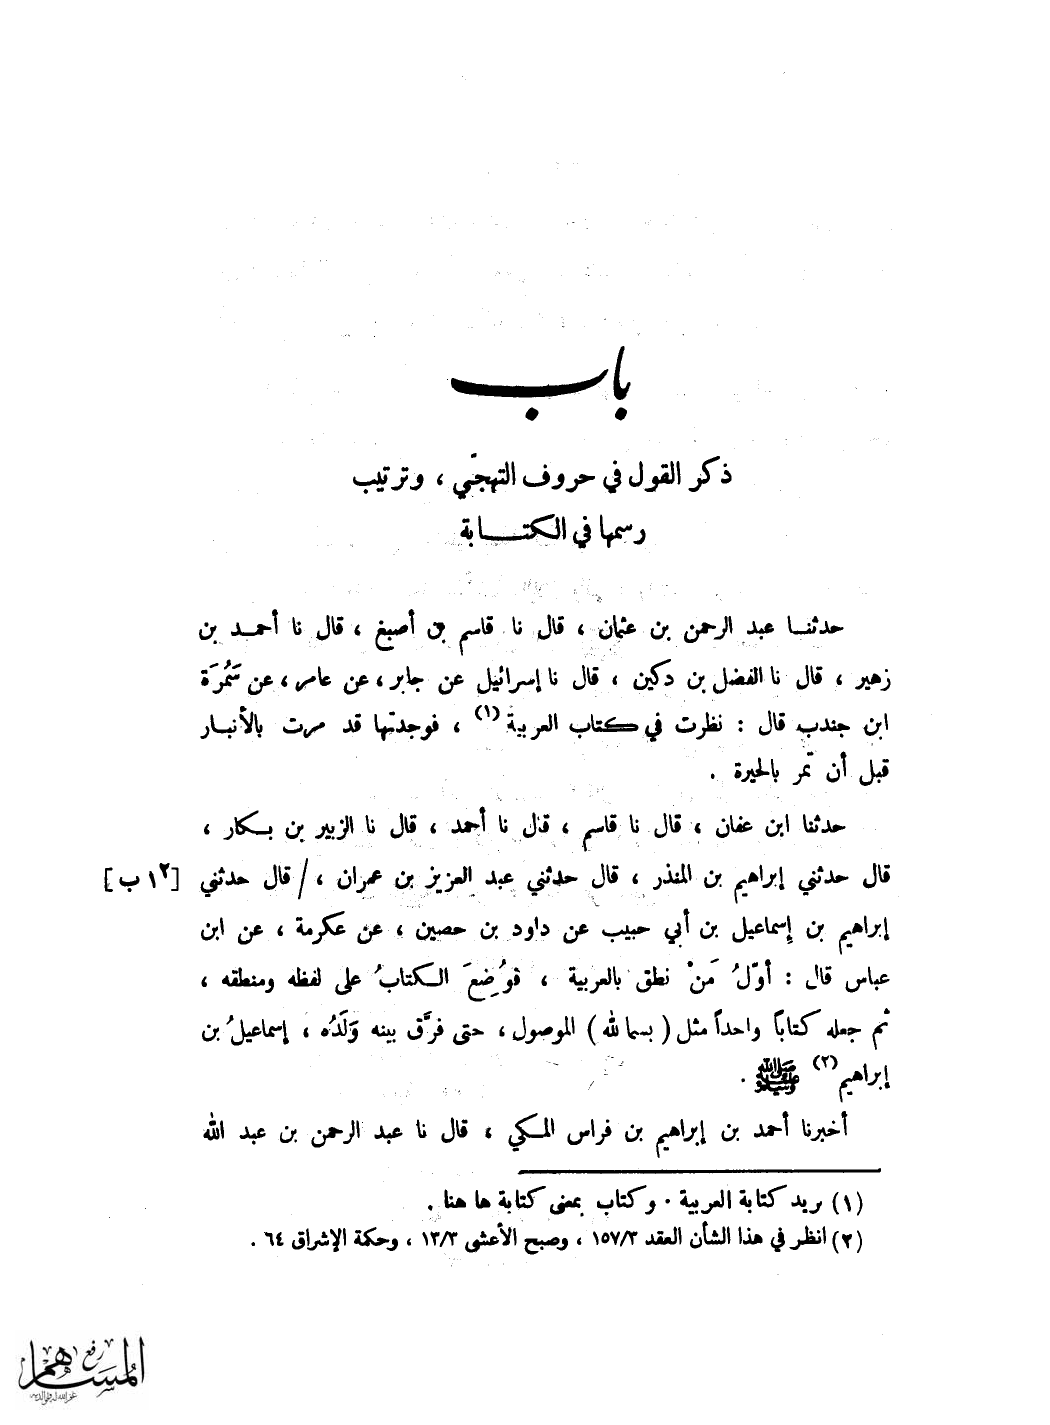 باب
ذكر القول في حروف التهجّي ، وترتيب
رسمها في الكتـــابة
حدثنـا عبد الرحمن بن عثمان ، قال نا قاسم بن أصبغ ، قال نا أحمـد بن
زهير ، قال نا الفضل بن دكين ، قال نا إسرائيل عن جابر ، عن عامر ، عن سَمُرَة
ابن جندب قال : نظرت في كتاب العربية (١) ، فوجدتها قد مرت بالأنبـار
قبل أن تمر بالحيرة .
حدثنا ابن عفان ، قال نا قاسم ، قال نا أحمد ، قال نا الزبير بن بـكار ،
قال حدثني إبراهيم بن المنذر ، قال حدثني عبد العزيز بن عمران ، / قال حدثني [١٢ ب]
إبراهيم بن إسماعيل بن أبي حبيب عن داود بن حصين ، عن عكرمة ، عن ابن
عباس قال : أوّلُ مَنْ نطق بالعربية ، فوُضِعَ الـكتابُ على لفظه ومنطقه ،
ثم جعله كتاباً واحداً مثل ( بسمالله ) الموصول ، حتى فرَّق بينه وَلَدُه ، إسماعيلُ بن
إبراهيم (٢) ﷺ .
أخبرنا أحمد بن إبراهيم بن فراس المـكي ، قال نا عبد الرحمن بن عبد الله
(١) يريد كتابة العربية . وكتاب بمعنى كتابة ها هنا .
(٢) انظر في هذا الشأن العقد ١٥٧/٣ ، وصبح الأعشى ١٣/٣ ، وحكمة الإشراق ٦٤ .
رفع
المساهم